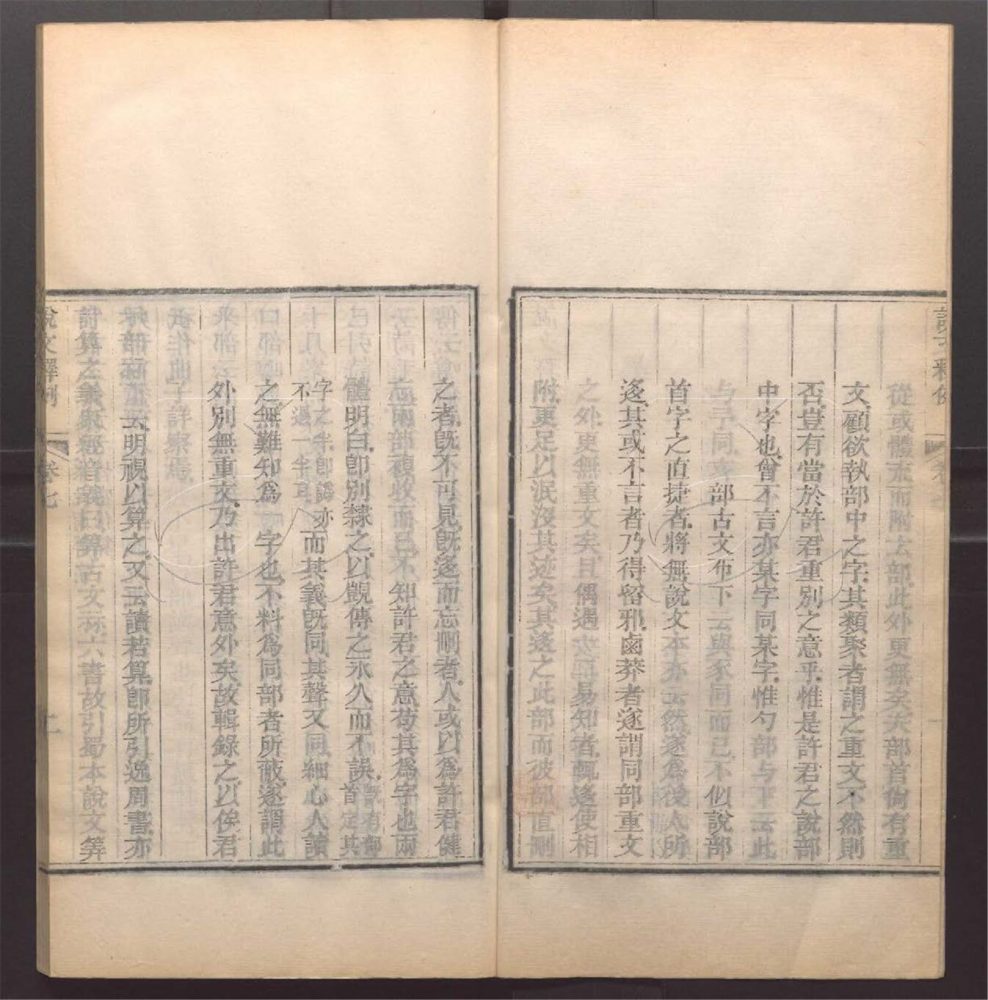 從或體而附大部此外更無矣大部首倘有重
文顧欲執部中之字其類聚者謂之重文不然則
否豈有當於許君重別之意乎惟是許君之說部
中字也曾不言亦某字同某字惟勺部与下云此
与予同豕部古文下云與豕同而已不似說部
首字之直捷者將無說文本亦云然遂爲後人所
迻其或不言者乃得留邪鹵莽者遂謂同部重文
之外更無重文矣且偶遇易知者輒迻使相
附更足以泯沒其迹矣其迻之此部而彼部直刪
之者既不可見既迻而忘刪者人或以爲許君健
忘兩部複收而已不知許君之意苟其爲字也兩
體明白即別隸之以觀傳之永久而不誤
字之半即譌亦
不過一半耳
而其義既同其聲又同細心人讀
之無難知爲一字也不料爲同部者所蔽遂謂此
外別無重文乃出許君意外矣故輒錄之以俟君
子詳察焉
示部祘下云明視以算之又云讀若算即所引逸周書亦
計算之義
古文祘六書故引蜀本說文筭
說文釋例
卷七